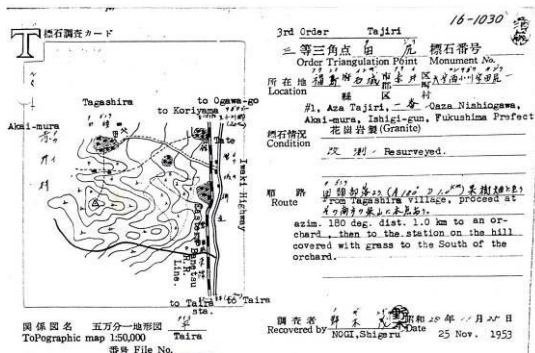 16-1030
T 標石調査カード
Tagashira
to Ogawa-go
to Koriyama
Akai-mura
赤井村
Tate
Iwaki Highway
Eastern Banetsu R.R. Line.
to Taira sta.
(to Taira
関係図名 五万分一地形図 平
ToPographic map 1:50,000 Taira
番号 File No.
3rd Order Tajiri
三等三角点 田尻 標石番号
Order Triangulation Point Monument No.
所在地 福島 縣 石城 郡 赤井 村
Location
#1, Aza Tajiri, Oaza Nishiogawa,
Akai-mura, Ishigi-gun, Fukushima Prefect
標石情況 花崗岩製(Granite)
Condition
改測 - Resurveyed.
順路
Route From Tagashira village, proceed at
azim. 180 deg. dist. 1.0 km to an or-
chard, then to the station on the hill
covered with grass to the South of the
orchard.
調査者 野木茂 昭和28年11月25日
Recovered by NOGI,Shigeru Date 25 Nov. 1953